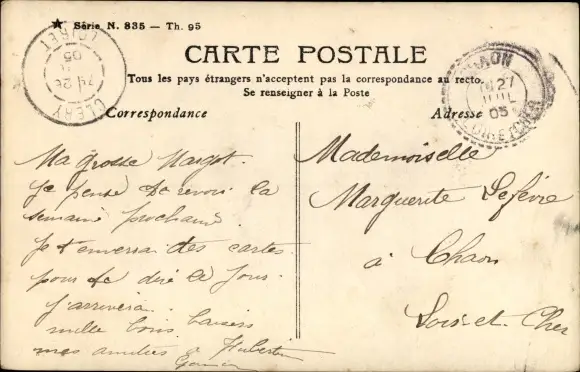 ★ Série N. 835 — Th. 95
CARTE POSTALE
Tous les pays étrangers n'acceptent pas la correspondance au recto.
Se renseigner à la Poste
Correspondance
Adresse
CLERY
LOIRET
05
CHAON
27
JUIL
05
LOIR-ET-CHER
Ma grosse Margot.
Je pense te revoir la
semaine prochaine.
Je t'enverrai des cartes
pour te dire le jour.
J'arriverai.
mille bons baisers
mes amitiés a Hubertin
Mademoiselle
Marguerite Lefévre
à Chaon
Loir-et-Cher